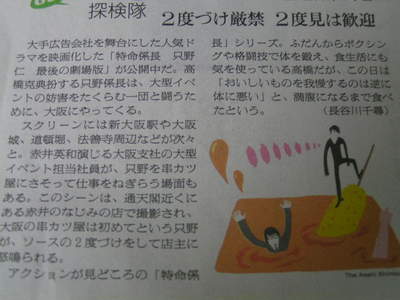 探検隊
2度づけ厳禁 2度見は歓迎
大手広告会社を舞台にした人気ド
ラマを映画化した「特命係長 只野
仁 最後の劇場版」が公開中だ。高
橋克典扮する只野係長は、大型イベ
ントの妨害をたくらむ一団と闘うた
めに、大阪にやってくる。
スクリーンには新大阪駅や大阪
城、道頓堀、法善寺周辺などが次々
と。赤井英和演じる大阪支社の大型
イベント担当社員が、只野を串カツ
屋にさそって仕事をねぎろう場面も
ある。このシーンは、通天閣近くに
ある赤井のなじみの店で撮影され、
大阪の串カツ屋は初めてという只野
が、ソースの2度づけをして店主に
怒鳴られる。
アクションが見どころの「特命係
長」シリーズ。ふだんからボクシン
グや格闘技で体を鍛え、食生活にも
気を使っている高橋だが、この日は
「おいしいものを我慢するのは逆に
体に悪い」と、満腹になるまで食べ
たという。
(長谷川千尋)
The Asahi Shimbun